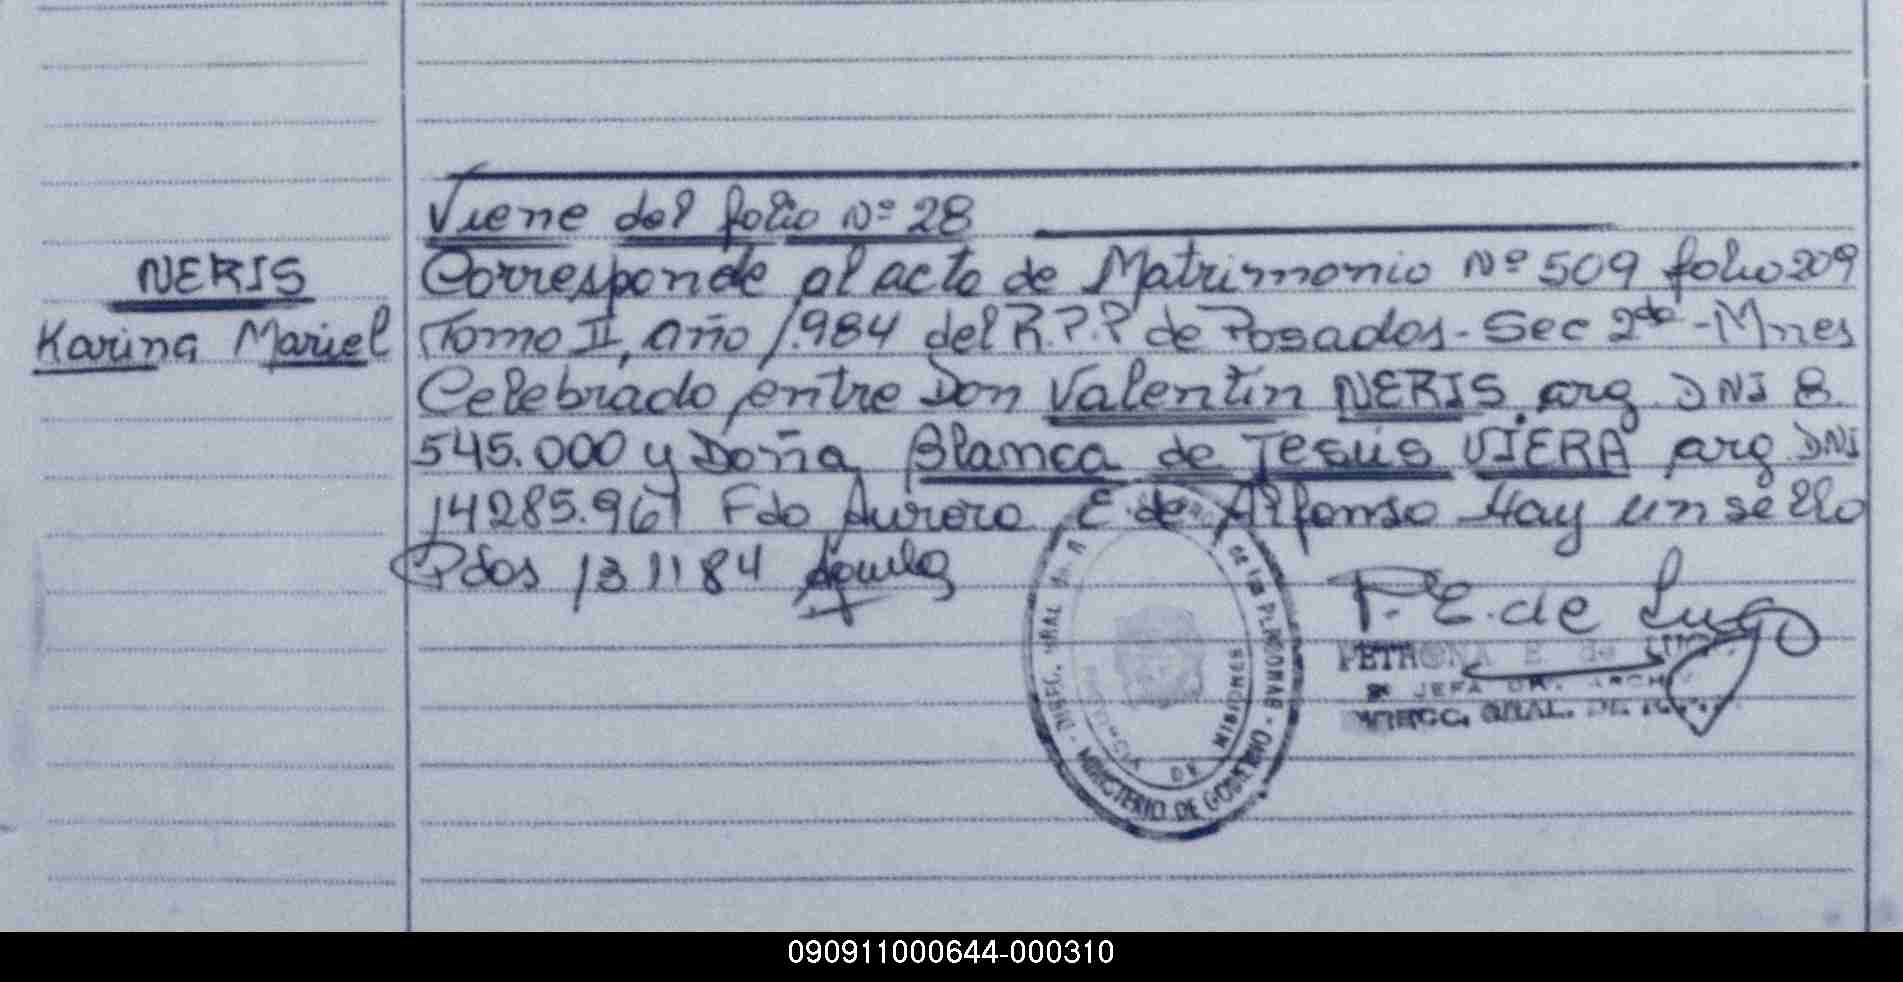 Viene del folio Nº 28
NERIS
Karina Mariel
Corresponde al acta de Matrimonio Nº 509 folio 209
Tomo II, año 1.984 del R.P.P de Posadas - Sec 2da - Mnes
Celebrado entre Don Valentín NERIS. arg. DNI 8.
545.000 y Doña Blanca de Jesús VIERA arg DNI
14285.967 Fdo Aurora E. de Alfonso Hay un sello
Pdos 13 11 84
P. E. de Lugo
PETRONA E. DE LUGO
JEFA ARCH
DIRECC. GRAL. DE
DE LAS PERSONAS - MINISTERIO DE GOBIERNO - DIREC. GRAL
PROVINCIA DE MISIONES
090911000644-000310